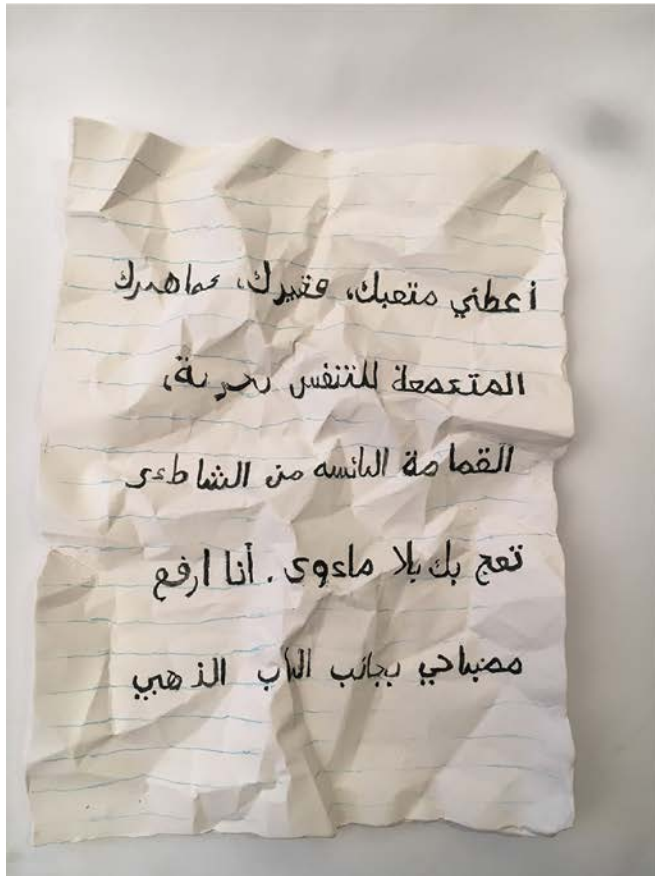 أعطني متعبك، فقيرك، جماهيرك
المتجمعة للتنفس بحرية،
القمامة البائسه من الشاطئ
تعج بك بلا ماءوى. أنا ارفع
مصباحي بجانب الباب الذهبي